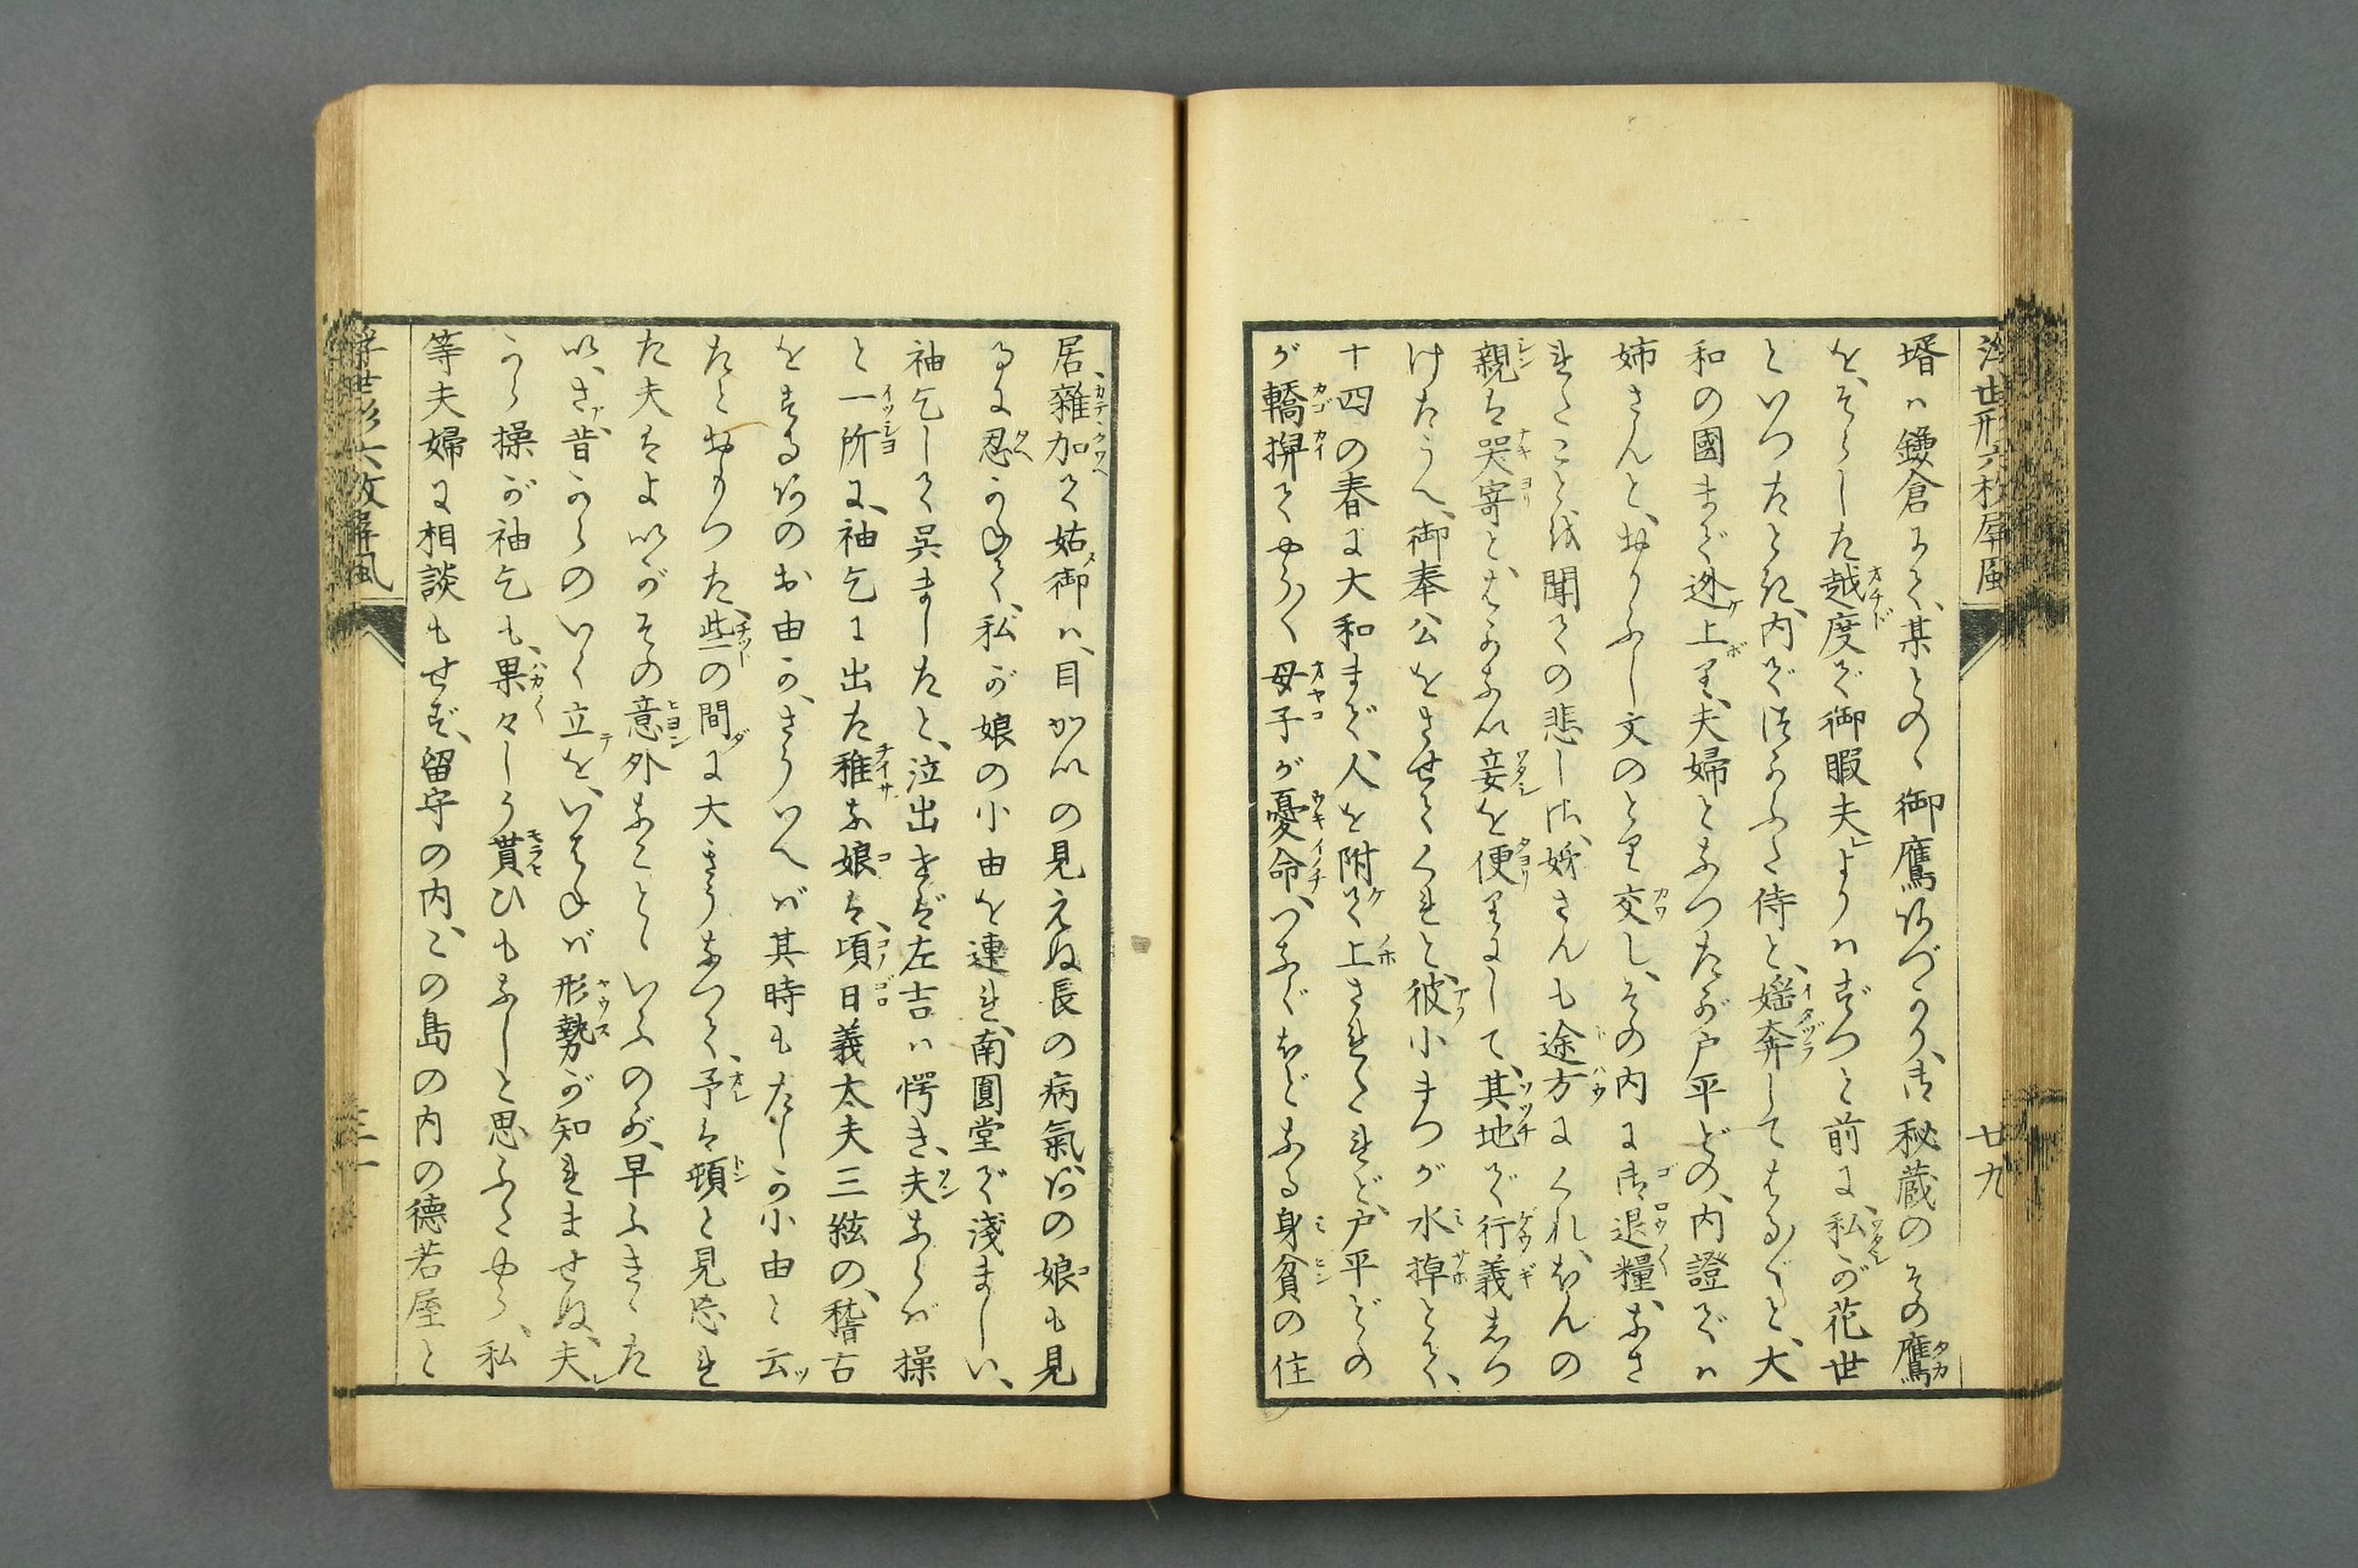 浮世形六枚屏風
廿九
壻ハ鎌倉にて、某との、御鷹あづかり、御秘蔵のその鷹
を、そらした越度で御暇夫よりハずつと前に、私が花世
といつたとき、内で使ふた侍と、婬奔してはる〴〵と、大
和の國まで迯上り、夫婦となつたが戸平どの、内證でハ
姉さんと、おりふし文のとり交し、その内に御退糧なさ
れたことを聞ての悲しさ、姊さんも途方にくれ、ほんの
親は哭寄と、はかない妾を便りにして、其地で行義見つ
けたうへ、御奉公をさせてくれと、彼小まつが水掉とて、
十四の春に大和まで、人を附て上されたれど、戸平どの
が轎掆でやう〳〵母子が憂命、つなぐほどなる身貧の住
居、雜加て姑御ハ、目かいの見えぬ長の病氣、あの娘も見
るに忍かねて、私が娘の小由を連れ、南圓堂で淺ましい、
袖乞して呉ましたと、泣出せば左吉ハ愕き、夫ならば操
と一所に、袖乞に出た稚な娘は、頃日義太夫三絃の、稽古
をするあのお由か、さういへば其時もたしか小由と云
たとおもつた、些の間に大きうなつて、予は頓と見忘れ
た夫はよいがその意外なことゝいふのが、早ふきゝた
い、さア、昔からのいく立を、いはねば形勢が知れませぬ、夫
から操が袖乞も、果々しう貰ひもなしと思ふたやら、私
等夫婦に相談もせず、留守の内、この島の内の徳若屋と
浮世形六枚屏風
三十